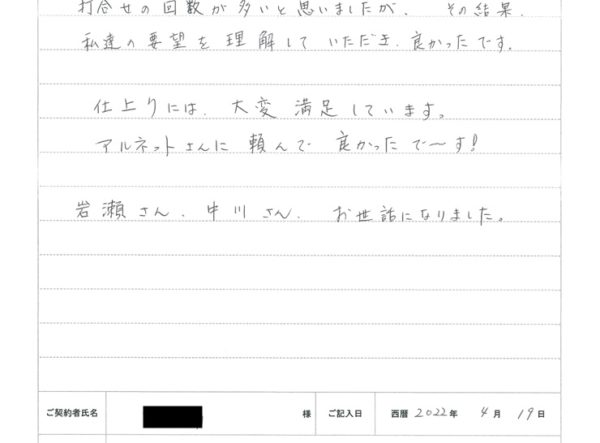 打合せの回数が多いと思いましたが、その結果、
私達の要望を理解していただき、良かったです。
仕上りには、大変満足しています。
アルネットさんに頼んで良かったで〜す!
岩瀬さん、中川さん、お世話になりました。
ご契約者氏名 様 ご記入日 西暦 2022年 4月 19日